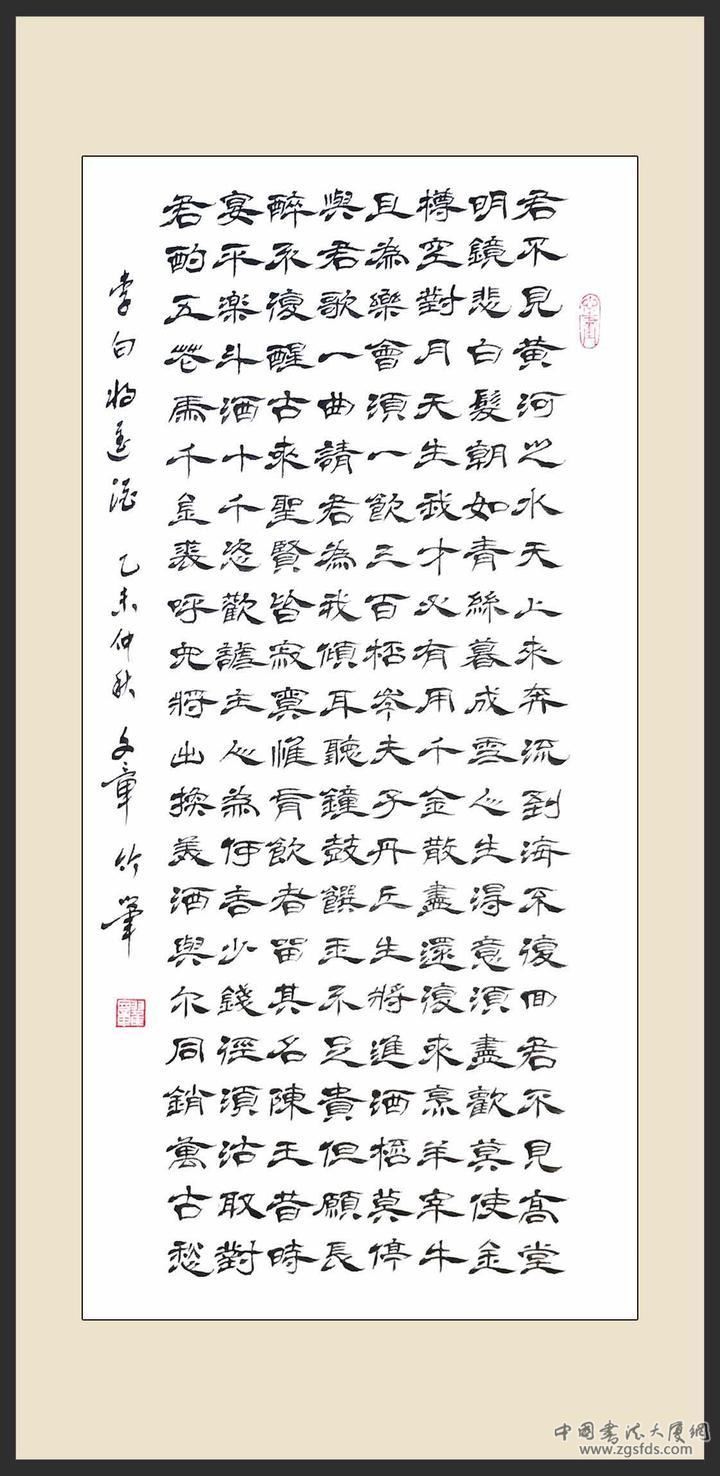 君不見黃河之水天上來奔流到海不復回君不見高堂
明鏡悲白髮朝如青絲暮成雪人生得意須盡歡莫使金
樽空對月天生我才必有用千金散盡還復來烹羊宰牛
且為樂會須一飲三百桮岑夫子丹丘生將進酒桮莫停
與君歌一曲請君為我傾耳聽鐘鼓饌玉不足貴但願長
醉不復醒古來聖賢皆寂寞惟有飲者留其名陳王昔時
宴平楽斗酒十千恣歡謔主人為何言少錢徑須沽取對
君酌五花馬千金裘呼兒將出換美酒與尔同銷萬古愁
李白將進酒 乙未仲秋 文章 竹筆
中國書法大廈網
www.zgsfds.com